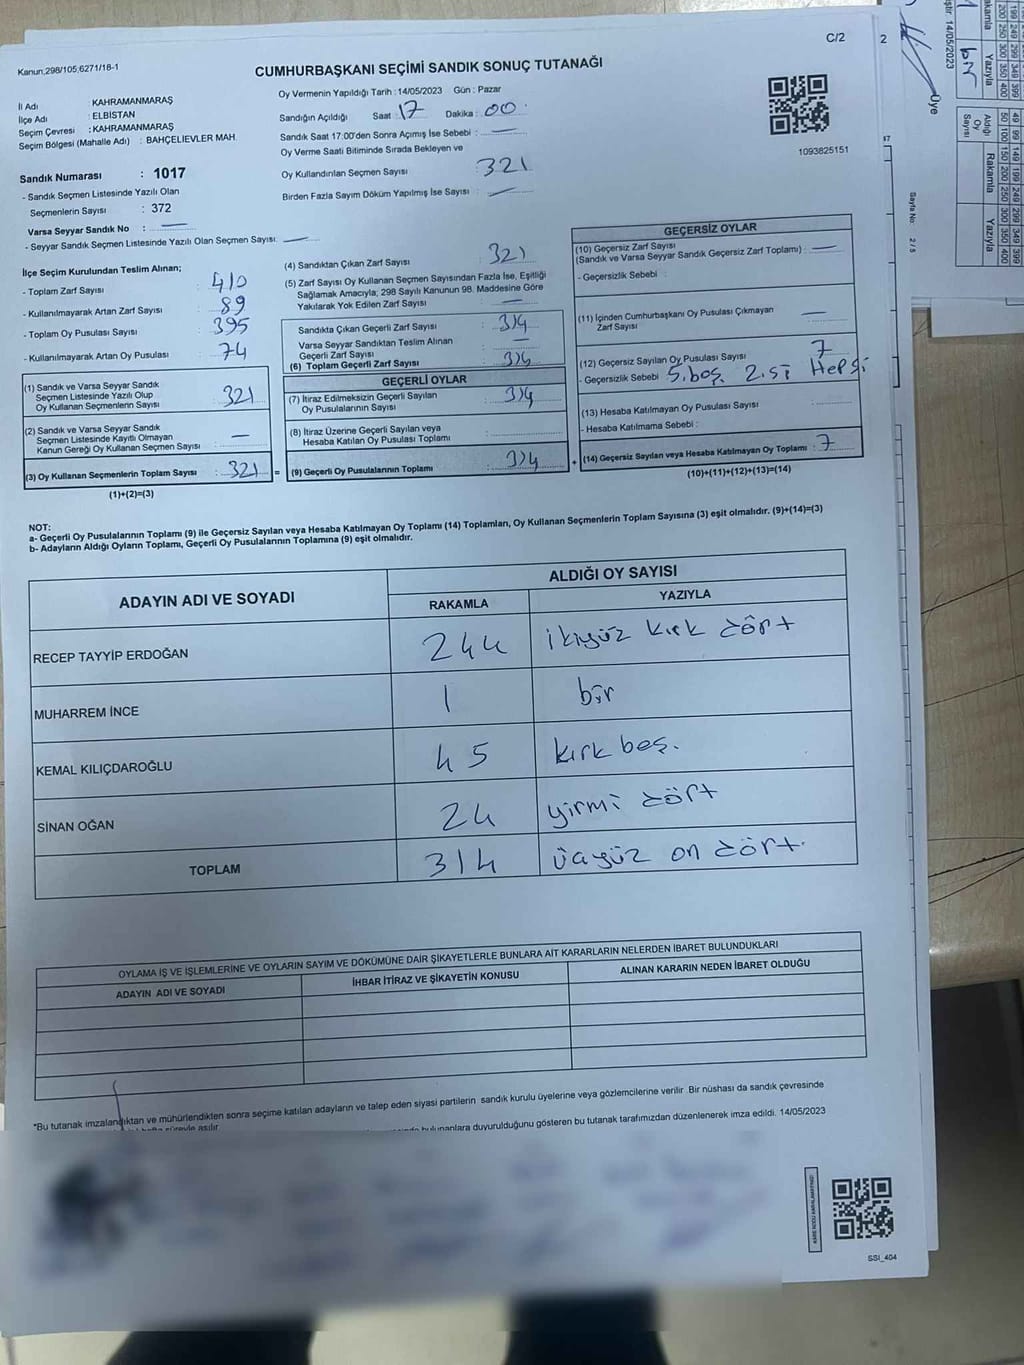 C/2
2
Kanun,298/105,6271/18-1
CUMHURBAŞKANI SEÇİMİ SANDIK SONUÇ TUTANAĞI
İl Adı KAHRAMANMARAŞ
İlçe Adı : ELBİSTAN
Seçim Çevresi : KAHRAMANMARAŞ
Seçim Bölgesi (Mahalle Adı) : BAHÇELİEVLER MAH.
Sandık Numarası : 1017
- Sandık Seçmen Listesinde Yazılı Olan
Seçmenlerin Sayısı : 372
Varsa Seyyar Sandık No : —
- Seyyar Sandık Seçmen Listesinde Yazılı Olan Seçmen Sayısı: —
Oy Vermenin Yapıldığı Tarih : 14/05/2023 Gün : Pazar
Sandığın Açıldığı Saat : 17 Dakika : 00
Sandık Saat 17:00'den Sonra Açımış İse Sebebi : —
Oy Verme Saati Bitiminde Sırada Bekleyen ve
Oy Kullandırılan Seçmen Sayısı : 321
Birden Fazla Sayım Döküm Yapılmış İse Sayısı : —
1093825151
İlçe Seçim Kurulundan Teslim Alınan;
- Toplam Zarf Sayısı : 410
- Kullanılmayarak Artan Zarf Sayısı : 89
- Toplam Oy Pusulası Sayısı : 395
- Kullanılmayarak Artan Oy Pusulası : 74
(1) Sandık ve Varsa Seyyar Sandık
Seçmen Listesinde Yazılı Olup
Oy Kullanan Seçmenlerin Sayısı : 321
(2) Sandık ve Varsa Seyyar Sandık
Seçmen Listesinde Kayıtlı Olmayan
Kanun Gereği Oy Kullanan Seçmen Sayısı : —
(3) Oy Kullanan Seçmenlerin Toplam Sayısı : 321 =
(1)+(2)=(3)
(4) Sandıktan Çıkan Zarf Sayısı : 321
(5) Zarf Sayısı Oy Kullanan Seçmen Sayısından Fazla İse, Eşitliği
Sağlamak Amacıyla; 298 Sayılı Kanunun 98. Maddesine Göre
Yakılarak Yok Edilen Zarf Sayısı : —
Sandıkta Çıkan Geçerli Zarf Sayısı : 314
Varsa Seyyar Sandıktan Teslim Alınan
Geçerli Zarf Sayısı : —
(6) Toplam Geçerli Zarf Sayısı : 314
GEÇERLİ OYLAR
(7) İtiraz Edilmeksizin Geçerli Sayılan
Oy Pusulalarının Sayısı : 314
(8) İtiraz Üzerine Geçerli Sayılan veya
Hesaba Katılan Oy Pusulası Toplamı :
(9) Geçerli Oy Pusulalarının Toplamı : 314 +
GEÇERSİZ OYLAR
(10) Geçersiz Zarf Sayısı
(Sandık ve Varsa Seyyar Sandık Geçersiz Zarf Toplamı) : —
- Geçersizlik Sebebi :
(11) İçinden Cumhurbaşkanı Oy Pusulası Çıkmayan
Zarf Sayısı : —
(12) Geçersiz Sayılan Oy Pusulası Sayısı : 7
- Geçersizlik Sebebi : 5.boş 2.si Hepsi
(13) Hesaba Katılmayan Oy Pusulası Sayısı :
- Hesaba Katılmama Sebebi :
(14) Geçersiz Sayılan veya Hesaba Katılmayan Oy Toplamı : 7
(10)+(11)+(12)+(13)=(14)
NOT:
a- Geçerli Oy Pusulalarının Toplamı (9) ile Geçersiz Sayılan veya Hesaba Katılmayan Oy Toplamı (14) Toplamları, Oy Kullanan Seçmenlerin Toplam Sayısına (3) eşit olmalıdır. (9)+(14)=(3)
b- Adayların Aldığı Oyların Toplamı, Geçerli Oy Pusulalarının Toplamına (9) eşit olmalıdır.
ADAYIN ADI VE SOYADI
ALDIĞI OY SAYISI
RAKAMLA YAZIYLA
RECEP TAYYİP ERDOĞAN 244 ikiyüz kırk dört
MUHARREM İNCE 1 bir
KEMAL KILIÇDAROĞLU 45 kırk beş.
SİNAN OĞAN 24 yirmi dört
TOPLAM 314 üçyüz on dört.
OYLAMA İŞ VE İŞLEMLERİNE VE OYLARIN SAYIM VE DÖKÜMÜNE DAİR ŞİKAYETLERLE BUNLARA AİT KARARLARIN NELERDEN İBARET BULUNDUKLARI
ADAYIN ADI VE SOYADI İHBAR İTİRAZ VE ŞİKAYETİN KONUSU ALINAN KARARIN NEDEN İBARET OLDUĞU
*Bu tutanak imzalandıktan ve mühürlendikten sonra seçime katılan adayların ve talep eden siyasi partilerin sandık kurulu üyelerine veya gözlemcilerine verilir. Bir nüshası da sandık çevresinde
süreyle asılır. bulunanlara duyurulduğunu gösteren bu tutanak tarafımızdan düzenlenerek imza edildi. 14/05/2023
SSI_404
Üye
14/05/2023
Rakamla
Yazıyla
bir
Aldığı
Oy
Sayısı
Rakamla
Yazıyla
49 99 149 199 249 299 349 399
50 100 150 200 250 300 350 400
199 249 299 349 399
200 250 300 350 400
Sayfa No: 2/5